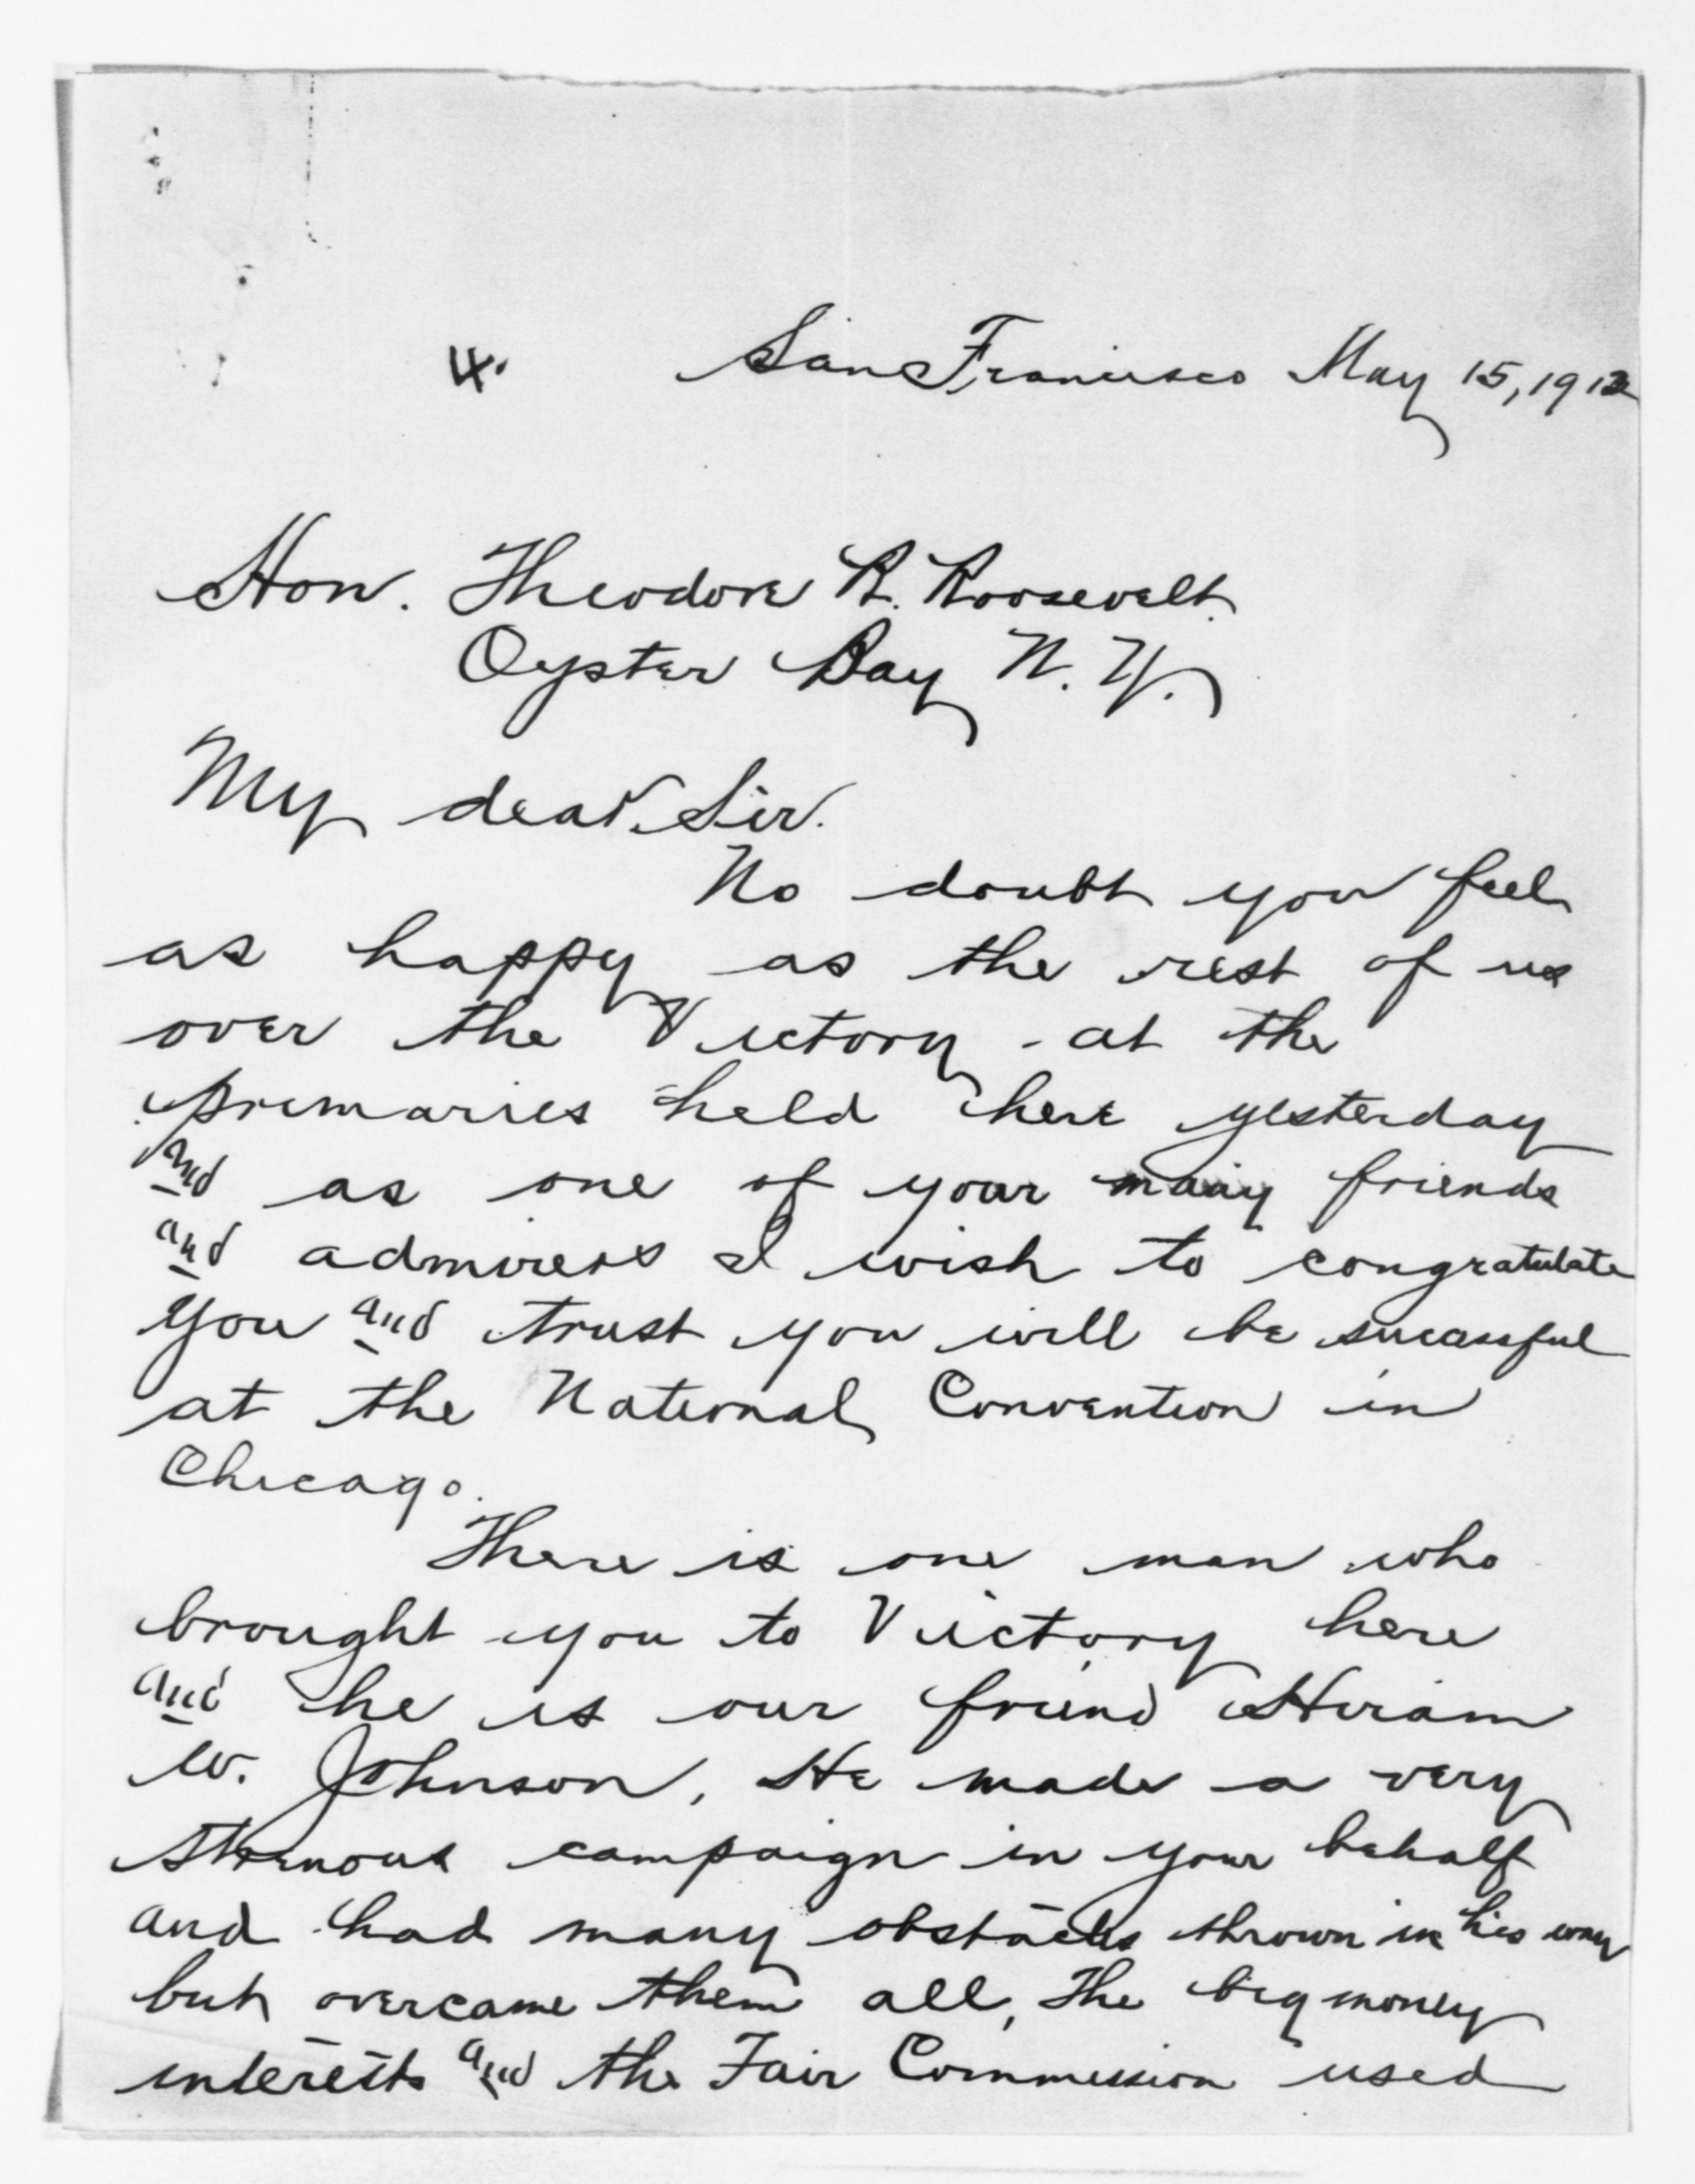 4. San Francisco May 15, 1912
Hon. Theodore R. Roosevelt.
Oyster Bay N. Y.
My dear Sir.
No doubt you feel
as happy as the rest of us
over the Victory at the
primaries held here yesterday
and as one of your many friends
and admirers I wish to congratulate
you and trust you will be sucessful
at the National Convention in
Chicago.
There is one man who
brought you to Victory here
and he is our friend Hiram
W. Johnson, He made a very
strenous campaign in your behalf
and had many obstacles thrown in his way
but overcame them all, The big money
interests and the Fair Commission used